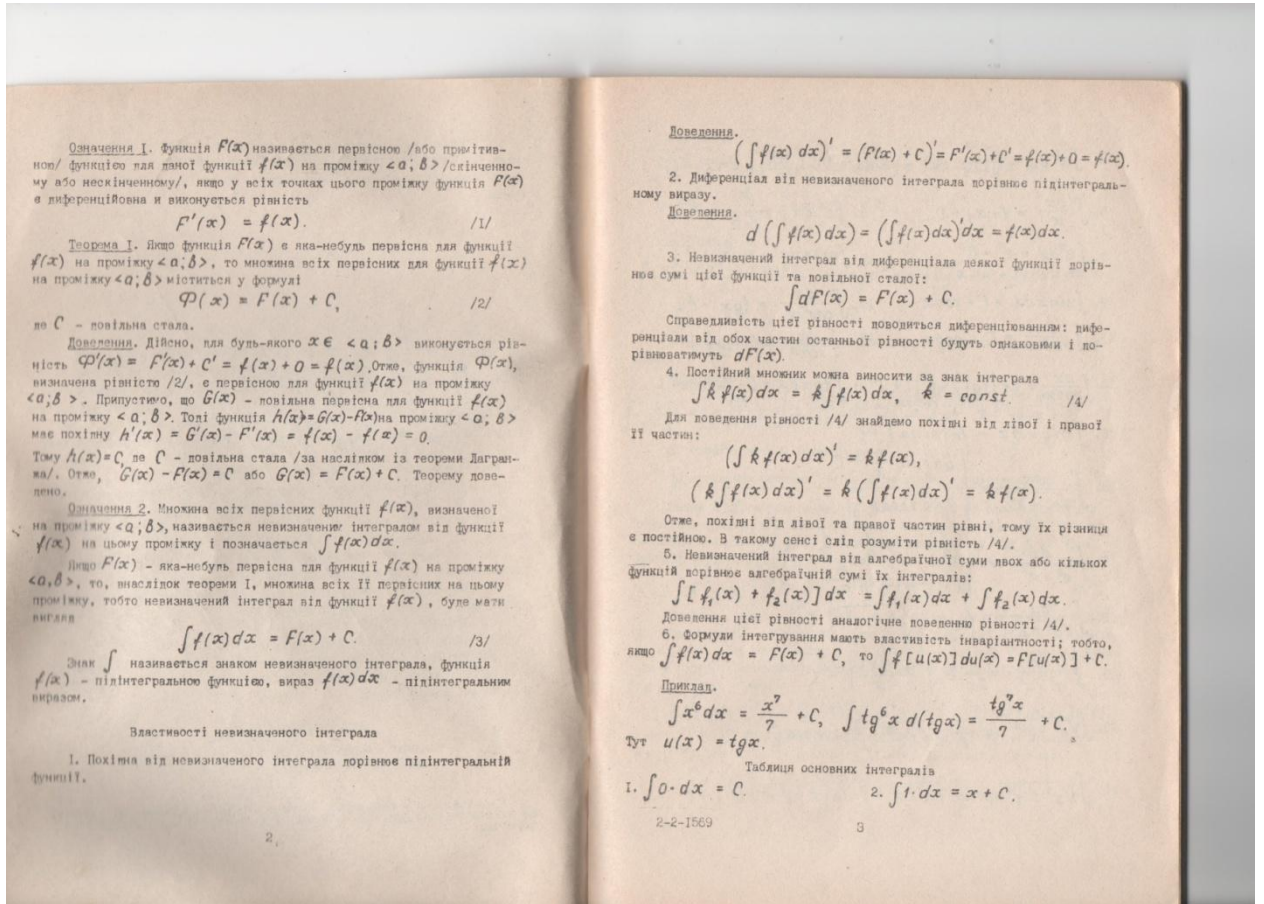 Означення I. Функція F(x) називається первісною /або примітив-
ною/ функцією для даної функції f(x) на проміжку <a; b> /скінченно-
му або нескінченному/, якщо у всіх точках цього проміжку функція F(x)
є диференційовна и виконується рівність
F'(x) = f(x). /1/
Теорема I. Якщо функція F(x) є яка-небудь первісна для функції
f(x) на проміжку <a; b>, то множина всіх первісних для функції f(x)
на проміжку <a; b> міститься у формулі
Φ(x) = F(x) + C, /2/
де C - довільна стала.
Доведення. Дійсно, для будь-якого x ∈ <a; b> виконується рів-
ність Φ'(x) = F'(x) + C' = f(x) + 0 = f(x). Отже, функція Φ(x),
визначена рівністю /2/, є первісною для функції f(x) на проміжку
<a; b>. Припустимо, що G(x) - довільна первісна для функції f(x)
на проміжку <a; b>. Тоді функція h(x)=G(x)-F(x) на проміжку <a; b>
має похідну h'(x) = G'(x) - F'(x) = f(x) - f(x) = 0.
Тому h(x)=C, де C - довільна стала /за наслідком із теореми Лагран-
жа/. Отже, G(x) - F(x) = C або G(x) = F(x) + C. Теорему дове-
дено.
Означення 2. Множина всіх первісних функції f(x), визначеної
на проміжку <a; b>, називається невизначеним інтегралом від функції
f(x) на цьому проміжку і позначається ∫f(x)dx.
Якщо F(x) - яка-небудь первісна для функції f(x) на проміжку
<a,b>, то, внаслідок теореми I, множина всіх її первісних на цьому
проміжку, тобто невизначений інтеграл від функції f(x), буде мати
вигляд
∫f(x)dx = F(x) + C. /3/
Знак ∫ називається знаком невизначеного інтеграла, функція
f(x) - підінтегральною функцією, вираз f(x)dx - підінтегральним
виразом.
Властивості невизначеного інтеграла
I. Похідна від невизначеного інтеграла дорівнює підінтегральній
функції.
2
Доведення.
(∫f(x) dx)' = (F(x) + C)' = F'(x) + C' = f(x) + 0 = f(x).
2. Диференціал від невизначеного інтеграла дорівнює підінтеграль-
ному виразу.
Доведення.
d(∫f(x)dx) = (∫f(x)dx)'dx = f(x)dx.
3. Невизначений інтеграл від диференціала деякої функції дорів-
нює сумі цієї функції та довільної сталої:
∫dF(x) = F(x) + C.
Справедливість цієї рівності доводиться диференціюванням: дифе-
ренціали від обох частин останньої рівності будуть однаковими і до-
рівнюватимуть dF(x).
4. Постійний множник можна виносити за знак інтеграла
∫k f(x)dx = k∫f(x)dx, k = const. /4/
Для доведення рівності /4/ знайдемо похідні від лівої і правої
її частин:
(∫k f(x)dx)' = k f(x),
(k∫f(x)dx)' = k(∫f(x)dx)' = k f(x).
Отже, похідні від лівої та правої частин рівні, тому їх різниця
є постійною. В такому сенсі слід розуміти рівність /4/.
5. Невизначений інтеграл від алгебраїчної суми двох або кількох
функцій дорівнює алгебраїчній сумі їх інтегралів:
∫[f₁(x) + f₂(x)]dx = ∫f₁(x)dx + ∫f₂(x)dx.
Доведення цієї рівності аналогічне доведенню рівності /4/.
6. Формули інтегрування мають властивість інваріантності; тобто,
якщо ∫f(x)dx = F(x) + C, то ∫f[u(x)]du(x) = F[u(x)] + C.
Приклад.
∫x⁶dx = x⁷/7 + C, ∫tg⁶x d(tgx) = tg⁷x/7 + C.
Тут u(x) = tgx.
Таблиця основних інтегралів
I. ∫0·dx = C. 2. ∫1·dx = x + C.
2-2-I569
3